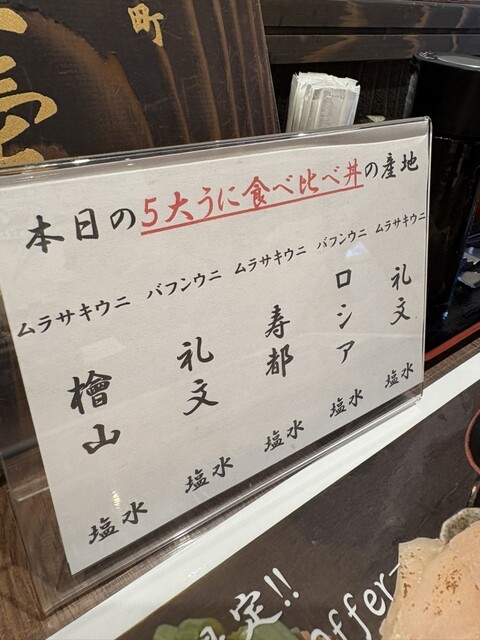 町
本日の5大うに食べ比べ丼の産地
ムラサキウニ 礼文 塩水
バフンウニ ロシア 塩水
ムラサキウニ 寿都 塩水
バフンウニ 礼文 塩水
ムラサキウニ 檜山 塩水
定!!
offer